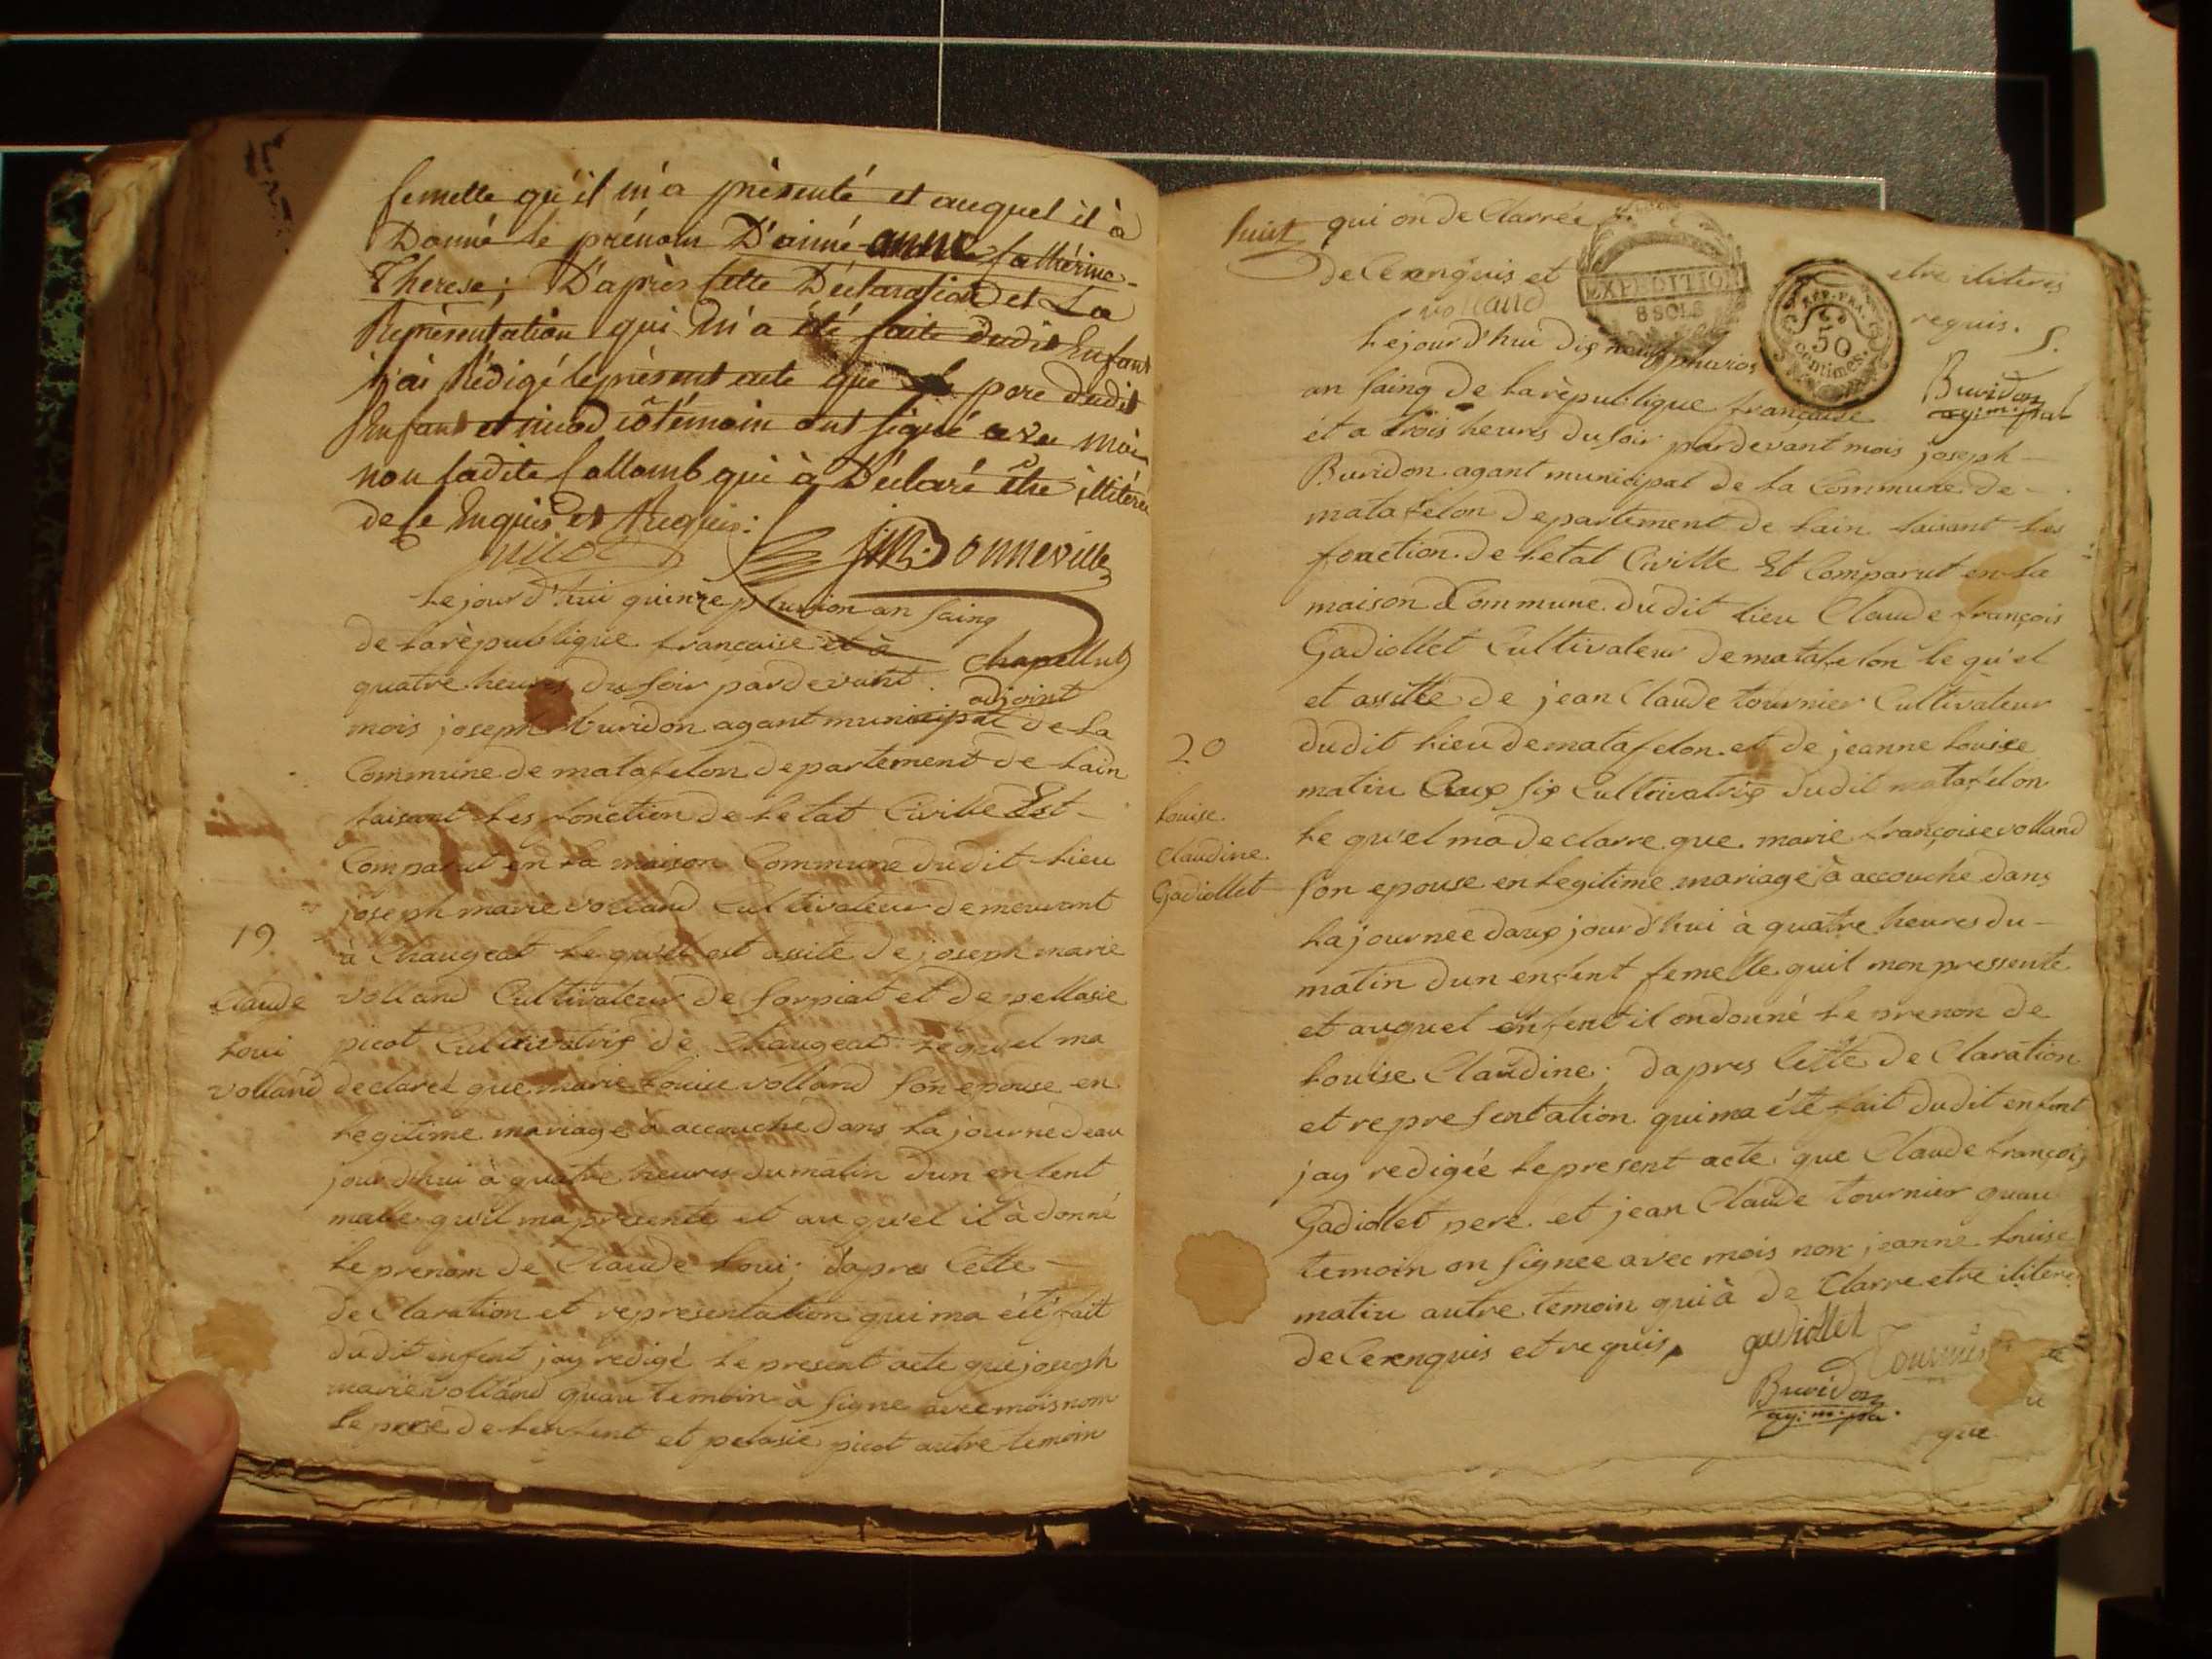 femelle qu'il m'a présenté et auquel il à
Donné le prénom D'aimé anne Cathérine-
Therese; D'après Cette Déclaration et La
Représentation qui M'a été faite dudit Enfant
j'ai Rédigé le présent acte que le pere dudit
Enfant et témoin ont signé avec Moi
non ladite Collomb qui à Déclaré être illiteré
de Ce Enquis et Requis:
picot
jm Donneville
Chapellut
adjoint
Lejourd'hui quinze pluvion an sainq
de la rèpublique francaise et à
quatre heures du soir pardevant
mois joseph buridon agant municipal de La
Commune de matafelon departement de Lain
faisant Les fonction de Letat Civille Est
Comparut en La maison Commune dudit Lieu
joseph marie volland Cultivateur demeurant
19
à Chaugeat Le qu'el est assité de joseph marie
Claude
volland Cultivateur de Corpiat et de pellasie
Loui
picot Cultivatrix de Chaugeat Lequel ma
volland
declaret que marie Louise volland son epouse en
Legitime mariage à accouche dans La journe deau
jourdhui à quatre heures du matin dun enfent
malle qu'il ma presente et au qu'el il à donné
Le prenom de Claude Loui; dapres Cette
de Claration et representation qui ma été fait
dudit enfent jay redigé Le present acte que joseph
marie volland quau temoin à signe avec mois nom
Le pere de Lenfent et pelasie picot autre temoin
huit
qui on de Clarrée
etre iliteres
de Ce enquis et
requis.
volland
EXPEDITION
8 SOLS
REP. FRA.
50
centimes.
Buridon
ag: m: pal
Lejourd'hui dix neuf pluvios
an sainq de La rèpublique francaise
et a trois heures du soir pardevant mois joseph
Buridon agant municipal de La Commune de
matafelon departement de Lain faisant Les
fonction de Letat Civille Et Comparut en La
maison Commune dudit Lieu Claude françois
Gadiollet Cultivateur de matafelon Le qu'el
et assitté de jean Claude tournier Cultivateur
20
dudit Lieu de matafelon et de jeanne Louise
matiu Cultivatrix dudit matafelon
Louise.
Claudine.
Gadiollet
Le qu'el ma declarre que marie françoise volland
son epouse en Legitime mariage à accouche dans
La journee daux jourd'hui à quatre heures du
matin dun enfent femelle quil mon pressente
et auquel enfent il on donné Le prenon de
Louise Claudine; dapres Cette de Claration
et representation qui ma été fait dudit enfent
jay redigée Le present acte que Claude françois
Gadiollet pere et jean Claude tournier quau
temoin on signee avec mois non jeanne Louise
matiu autre temoin qui à de Clarre etre ilitere
de Ce enquis et requis,
gadiollet
Tournier
Buridon
ag: m: pal
que